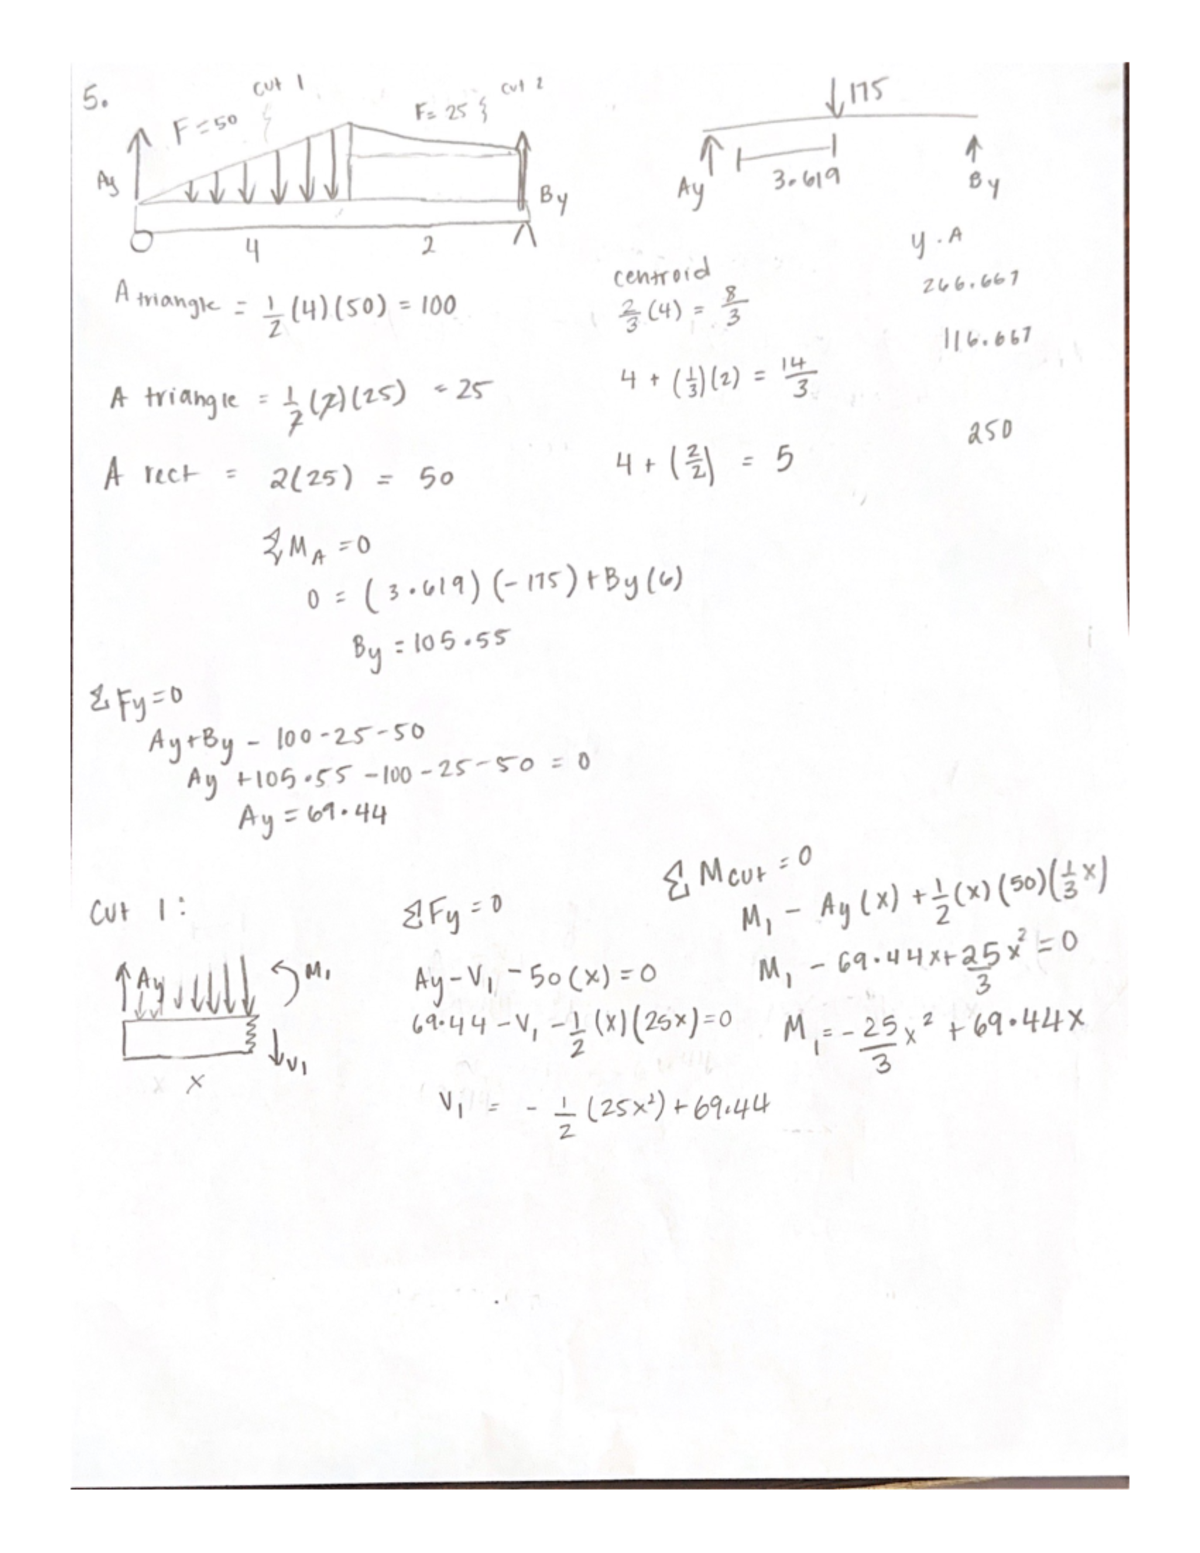 5.
cut 1
cut 2
F=50
F= 25 }
Ay
By
4
2
↓175
Ay
3.619
By
centroid
y . A
A triangle = 1/2 (4)(50) = 100
2/3 (4) = 8/3
266.667
A triangle = 1/2 (2)(25) = 25
4 + (1/3)(2) = 14/3
116.667
A rect = 2(25) = 50
4 + (2/2) = 5
250
ΣM_A = 0
0 = (3.619)(-175) + By(6)
By = 105.55
ΣFy=0
Ay+By - 100-25-50
Ay +105.55 -100-25-50 = 0
Ay = 69.44
Cut 1:
Ay
M₁
V₁
x
ΣFy = 0
Ay-V₁ -50(x) = 0
69.44 -V₁ -1/2 (x)(25x)=0
V₁ = - 1/2 (25x²) + 69.44
ΣMcut = 0
M₁ - Ay(x) + 1/2 (x)(50)(1/3 x)
M₁ - 69.44x+ 25/3 x² = 0
M₁ = - 25/3 x² + 69.44x